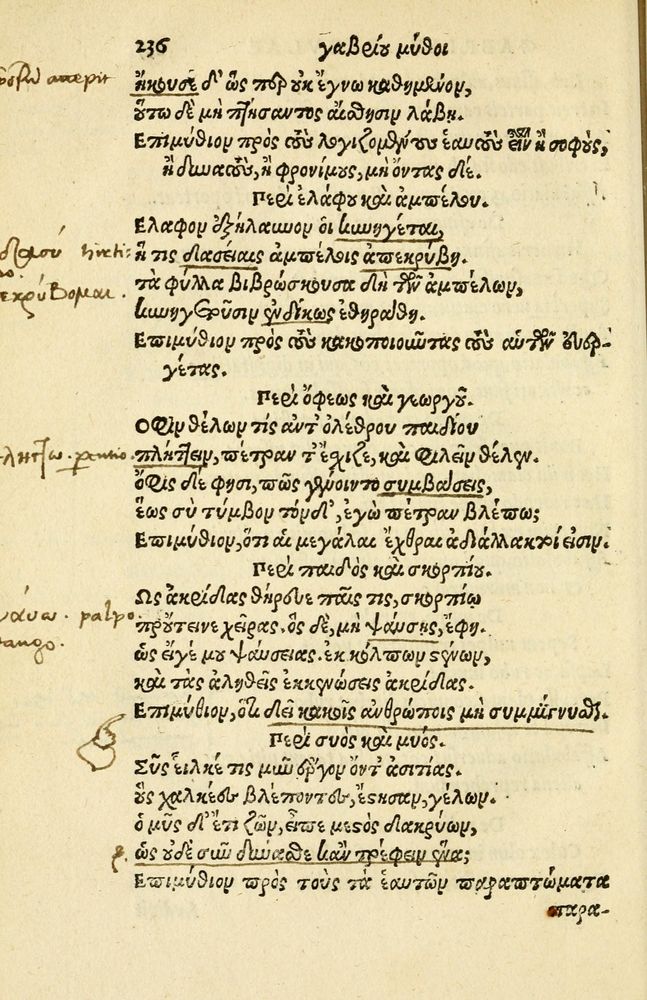 236 γαβρίου μῦθοι
ἤκουσε δ' ὡς που οὐκ ἔγνω καθημένον,
οὕτω δὲ μὴ πτήσαντος αἴσθησιν λάβῃ.
Επιμύθιον πρὸς τοὺς λογιζομένους ἑαυτοὺς εἶναι ἢ σοφοὺς,
ἢ δυνατοὺς, ἢ φρονίμους, μὴ ὄντας δέ.
Περὶ ἐλάφου καὶ ἀμπέλου.
Ελαφον ἐξήλαυνον οἱ κυνηγέται,
ἥ τις δασείαις ἀμπέλοις ἀπεκρύβη.
τὰ φύλλα βιβρώσκουσα δὴ τῶν ἀμπέλων,
κυνηγέταις ἐνδίκως ἐθηράθη.
Επιμύθιον πρὸς τοὺς κακοποιοῦντας τοὺς αὐτῶν εὐερ-
γέτας.
Περὶ ὄφεως καὶ γεωργοῦ.
Οφιν θέλων τίς ἀντ' ὀλέθρου παιδίου
πλήττειν, πέτραν τ' ἔσχιζε, καὶ φιλεῖν θέλει.
ὄφις δέ φησι, πῶς γένοιντο συμβάσεις,
ἕως σὺ τύμβον τόνδ', ἐγὼ πέτραν βλέπω;
Επιμύθιον, ὅτι αἱ μεγάλαι ἔχθραι ἀδιάλλακτοί εἰσιν.
Περὶ παιδὸς καὶ σκορπίου.
Ως ἀκρίδας θήρευε παῖς τις, σκορπίῳ
προὔτεινε χεῖρας. ὃς δὲ, μὴ ψαύσῃς, ἔφη.
ὡς εἴγέ μου ψαύσειας. ἐκ κόλπων στένων,
καὶ τὰς ἀληθεῖς ἐκκενώσεις ἀκρίδας.
Επιμύθιον, ὅτι δεῖ κακοῖς ἀνθρώποις μὴ συμμίγνυσθαι.
Περὶ συὸς καὶ μυός.
Σῦς εἷλκέ τις μῦν ἔργον ὄντ' ἀσιτίας.
οὓς χαλκέες βλέποντες, ἔστησαν, γέλων.
ὁ μῦς δ' ἔτι ζῶν, εἶπε μεστὸς δακρύων,
ὡς οὐδὲ σῦν δύνασθε κἂν τρέφειν ἕνα;
Επιμύθιον πρὸς τοὺς τὰ ἑαυτῶν παραπτώματα
παρα-
palpo
tango.